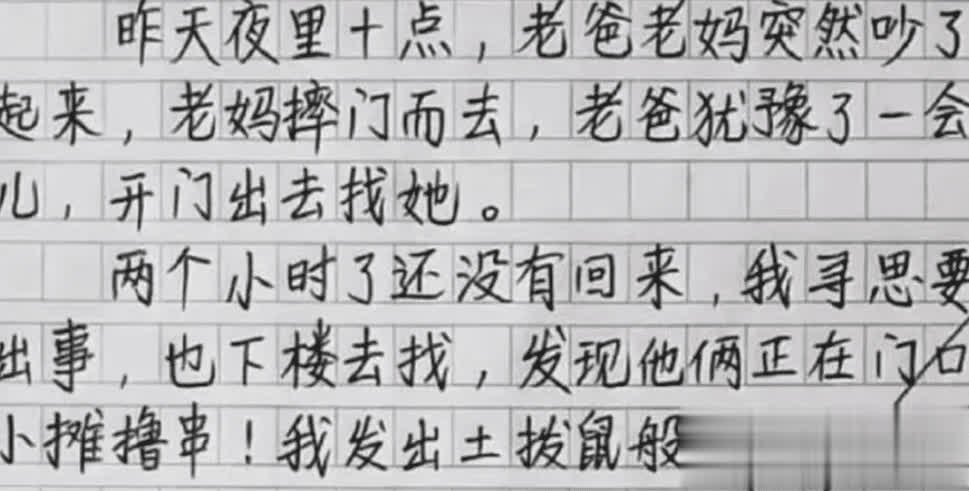 昨天夜里十点，老爸老妈突然吵了
起来，老妈摔门而去，老爸犹豫了一会
儿，开门出去找她。
两个小时了还没有回来，我寻思要
出事，也下楼去找，发现他俩正在门口
小摊撸串！我发出土拨鼠般